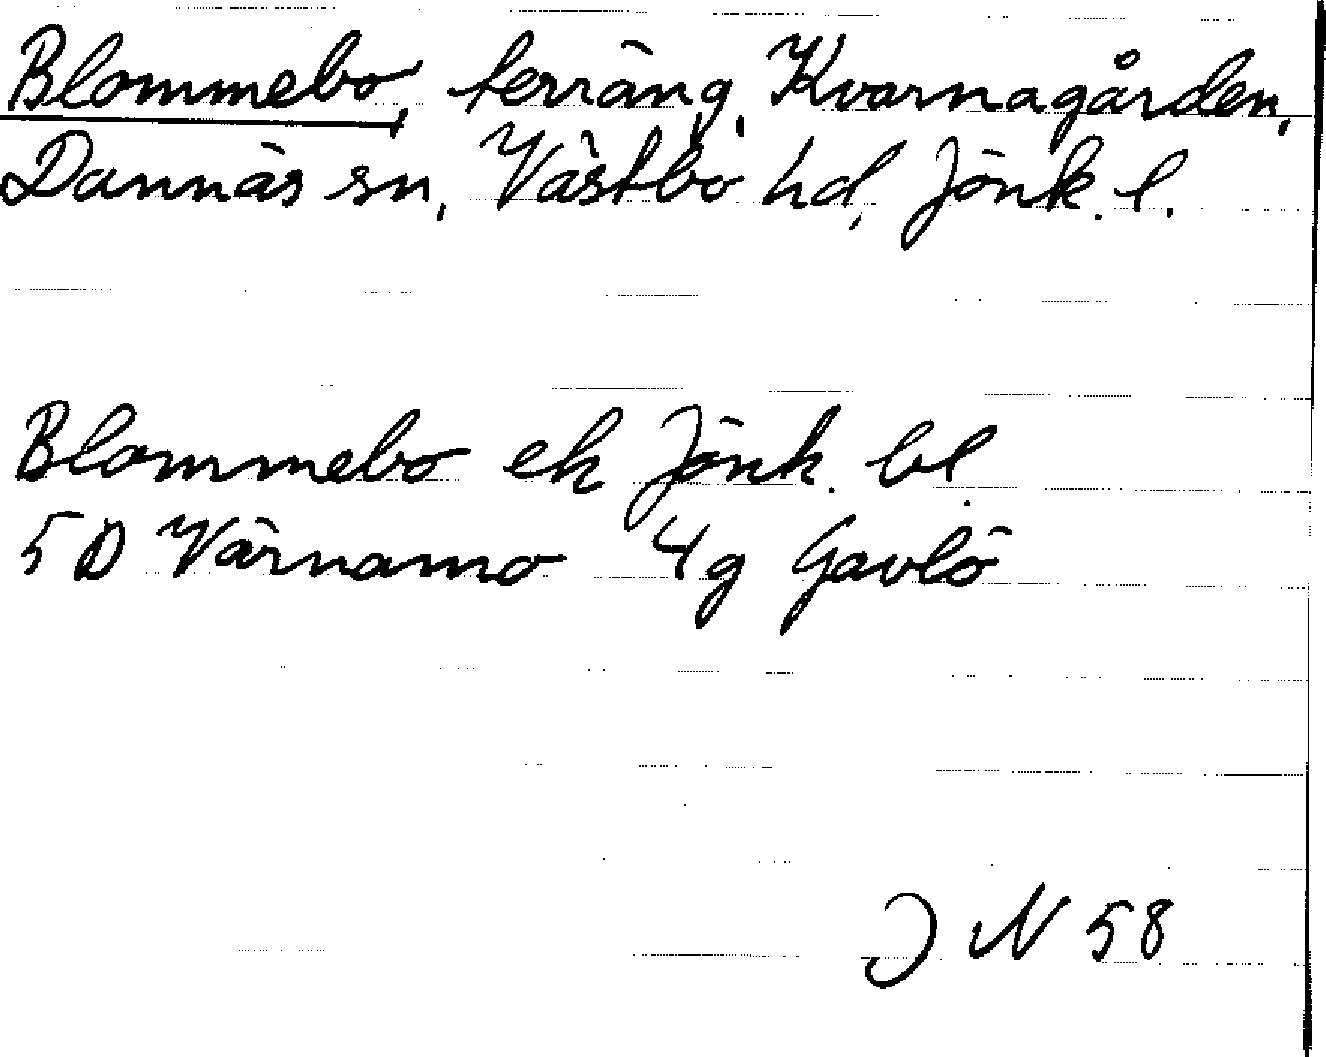 Blommebo, terräng, Kvarnagården,
Dannäs sn, Västbo hd, Jönk. l.
Blommebo ek Jönk. bl
5D Värnamo 4g Gavlö
J N 58